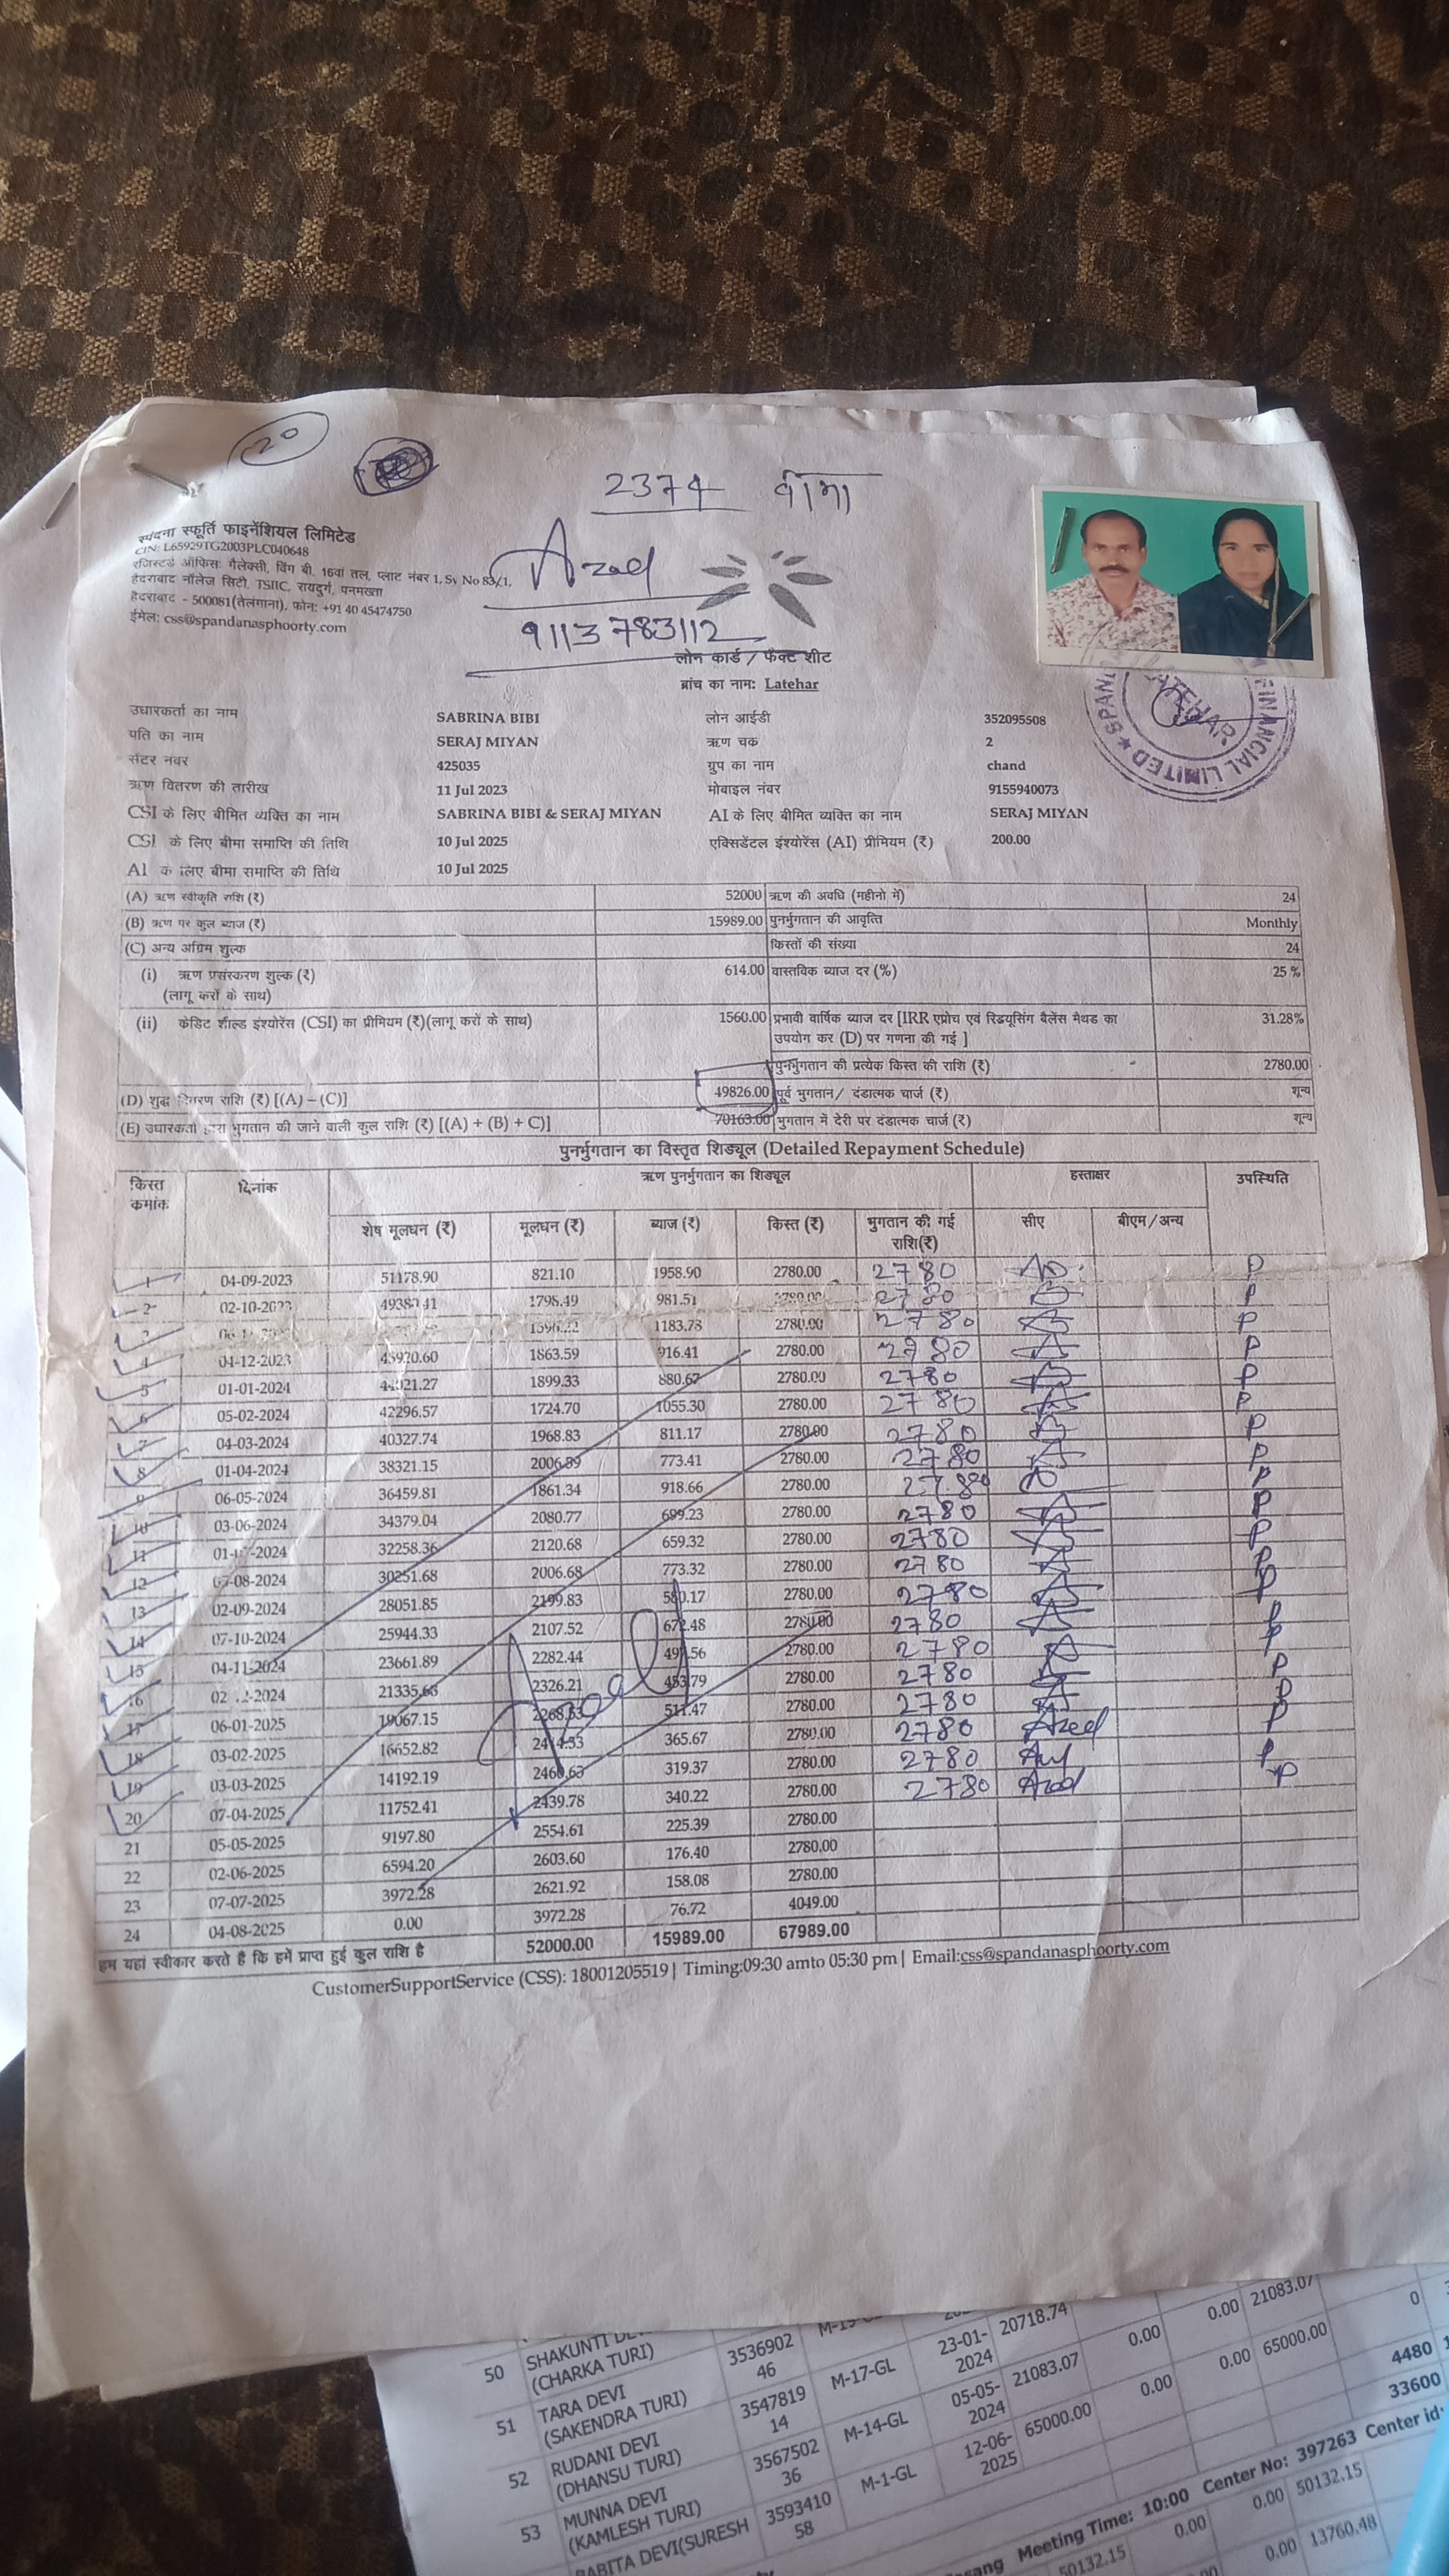 20
2374 बीमा
स्पंदना स्फूर्ति फाइनेंशियल लिमिटेड
CIN: L65929TG2003PLC040648
रजिस्टर्ड ऑफिस: गैलेक्सी, विंग बी, 16वां तल, प्लाट नंबर 1, Sy No 83/1,
हैदराबाद नॉलेज सिटी, TSIIC, रायदुर्ग, पनमख्ता
हैदराबाद - 500081(तेलंगाना), फोन: +91 40 45474750
ईमेल: css@spandanasphoorty.com
Azad
9113783112
लोन कार्ड / फैक्ट शीट
ब्रांच का नाम: Latehar
उधारकर्ता का नाम SABRINA BIBI लोन आईडी 352095508
पति का नाम SERAJ MIYAN ऋण चक्र 2
सेंटर नंबर 425035 ग्रुप का नाम chand
ऋण वितरण की तारीख 11 Jul 2023 मोबाइल नंबर 9155940073
CSI के लिए बीमित व्यक्ति का नाम SABRINA BIBI & SERAJ MIYAN AI के लिए बीमित व्यक्ति का नाम SERAJ MIYAN
CSI के लिए बीमा समाप्ति की तिथि 10 Jul 2025 एक्सिडेंटल इंश्योरेंस (AI) प्रीमियम (₹) 200.00
AI के लिए बीमा समाप्ति की तिथि 10 Jul 2025
(A) ऋण स्वीकृति राशि (₹) 52000 ऋण की अवधि (महीनो में) 24
(B) ऋण पर कुल ब्याज (₹) 15989.00 पुनर्भुगतान की आवृत्ति Monthly
(C) अन्य अग्रिम शुल्क किस्तों की संख्या 24
(i) ऋण प्रसंस्करण शुल्क (₹) 614.00 वास्तविक ब्याज दर (%) 25 %
(लागू करों के साथ)
(ii) क्रेडिट शील्ड इंश्योरेंस (CSI) का प्रीमियम (₹)(लागू करों के साथ) 1560.00 प्रभावी वार्षिक ब्याज दर [IRR एप्रोच एवं रिड्यूसिंग बैलेंस मैथड का 31.28%
उपयोग कर (D) पर गणना की गई ]
पुनर्भुगतान की प्रत्येक किस्त की राशि (₹) 2780.00
(D) शुद्ध वितरण राशि (₹) [(A) – (C)] 49826.00 पूर्व भुगतान/ दंडात्मक चार्ज (₹) शून्य
(E) उधारकर्ता द्वारा भुगतान की जाने वाली कुल राशि (₹) [(A) + (B) + C)] 70163.00 भुगतान में देरी पर दंडात्मक चार्ज (₹) शून्य
पुनर्भुगतान का विस्तृत शिड्यूल (Detailed Repayment Schedule)
किस्त क्रमांक दिनांक ऋण पुनर्भुगतान का शिड्यूल हस्ताक्षर उपस्थिति
शेष मूलधन (₹) मूलधन (₹) ब्याज (₹) किस्त (₹) भुगतान की गई राशि(₹) सीए बीएम/अन्य
1 04-09-2023 51178.90 821.10 1958.90 2780.00 2780 P
2 02-10-2023 1798.49 981.51 2780.00 2780 P
3 1183.78 2780.00 2780 P
4 04-12-2023 45920.60 1863.59 916.41 2780.00 2780 P
5 01-01-2024 44021.27 1899.33 880.67 2780.00 2780 P
6 05-02-2024 42296.57 1724.70 1055.30 2780.00 2780 P
7 04-03-2024 40327.74 1968.83 811.17 2780.00 2780 P
8 01-04-2024 38321.15 2006.59 773.41 2780.00 2780 P
9 06-05-2024 36459.81 1861.34 918.66 2780.00 2780 P
10 03-06-2024 34379.04 2080.77 699.23 2780.00 2780 P
11 32258.36 2120.68 659.32 2780.00 2780 P
12 30251.68 2006.68 773.32 2780.00 2780 P
13 02-09-2024 28051.85 2199.83 580.17 2780.00 2780 P
14 07-10-2024 25944.33 2107.52 672.48 2780.00 2780 P
15 04-11-2024 23661.89 2282.44 497.56 2780.00 2780 P
16 21335.68 2326.21 453.79 2780.00 2780 P
17 06-01-2025 19067.15 2268.53 511.47 2780.00 2780 P
18 03-02-2025 16652.82 2414.33 365.67 2780.00 2780 Azad P
19 03-03-2025 14192.19 2460.63 319.37 2780.00 2780 P
20 07-04-2025 11752.41 2439.78 340.22 2780.00 2780 Azad P
21 05-05-2025 9197.80 2554.61 225.39 2780.00
22 02-06-2025 6594.20 2603.60 176.40 2780.00
23 07-07-2025 3972.28 2621.92 158.08 2780.00
24 04-08-2025 0.00 3972.28 76.72 4049.00
हम यहां स्वीकार करते है कि हमें प्राप्त हुई कुल राशि है 52000.00 15989.00 67989.00
CustomerSupportService (CSS): 18001205519| Timing:09:30 amto 05:30 pm| Email:css@spandanasphoorty.com
50 SHAKUNTI (CHARKA TURI) 353690246 23-01-2024 20718.74 0.00 21083.07 0
51 TARA DEVI (SAKENDRA TURI) 354781914 M-17-GL 05-05-2024 21083.07 0.00 0.00 65000.00 4480
52 RUDANI DEVI (DHANSU TURI) 356750236 M-14-GL 12-06-2025 65000.00 0.00 33600
53 MUNNA DEVI (KAMLESH TURI) 359341058 M-1-GL
BABITA DEVI(SURESH
Meeting Time: 10:00 Center No: 397263 Center id:
50132.15 0.00 0.00 50132.15
0.00 13760.48